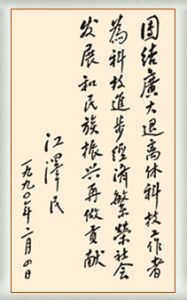 团结廣大退离休科技工作者
為科技進步經濟繁榮社会
发展和民族振兴再做貢献
江澤民
一九九〇年二月四日